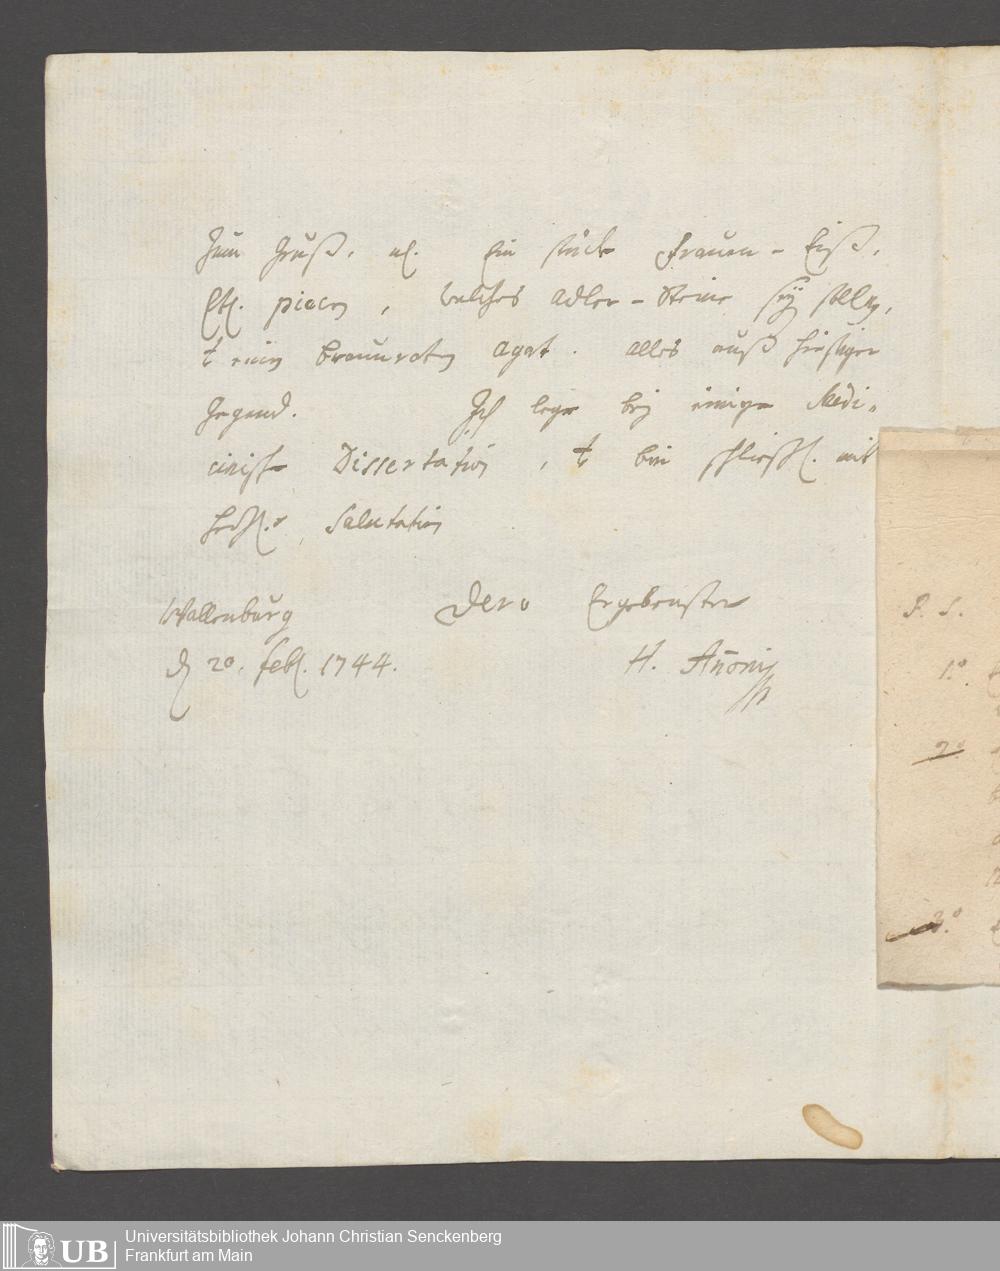 zum Gruß. als. Ein stück Frauen-Eiß.
Etl. pieces, welches Adler-Steine seÿ sollen,
& ein braunroten Agat. alles auß hiesiger
Gegend. Ich lege beÿ einige Medi-
cinische Dissertation, & bin schließl. mit
herzl.r Salutation
Wallenburg Dero Ergebenster
d 20. Feb. 1744. H. Anoni
P. S.
1.º
2.º
3.º
Universitätsbibliothek Johann Christian Senckenberg
Frankfurt am Main
UB